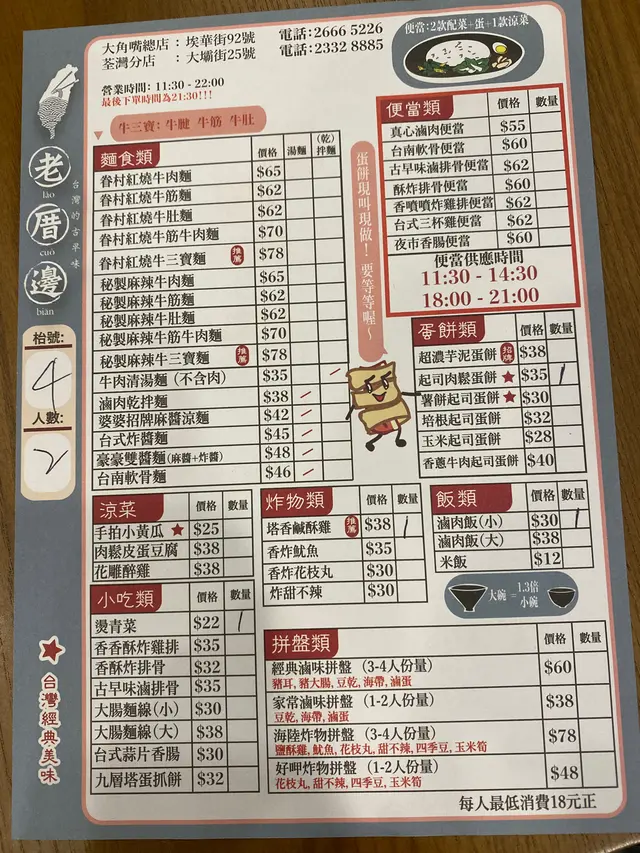 大角嘴總店：埃華街92號
荃灣分店：大壩街25號
電話:2666 5226
電話:2332 8885
營業時間: 11:30 - 22:00
最後下單時間為21:30!!!
便當:2款配菜+蛋+1款涼菜
老
lǎo
厝
cuò
邊
biān
台灣的古早味
枱號:
4
人數:
2
台灣經典美味
牛三寶: 牛腱 牛筋 牛肚
麵食類 價格 湯麵 (乾)拌麵
眷村紅燒牛肉麵 $65
眷村紅燒牛筋麵 $62
眷村紅燒牛肚麵 $62
眷村紅燒牛筋牛肉麵 $70
眷村紅燒牛三寶麵 推薦 $78
秘製麻辣牛肉麵 $65
秘製麻辣牛筋麵 $62
秘製麻辣牛肚麵 $62
秘製麻辣牛筋牛肉麵 $70
秘製麻辣牛三寶麵 推薦 $78
牛肉清湯麵 (不含肉) $35
滷肉乾拌麵 $38
婆婆招牌麻醬涼麵 $42
台式炸醬麵 $45
豪豪雙醬麵(麻醬+炸醬) $48
台南軟骨麵 $46
蛋餅現叫現做！要等等喔～
便當類 價格 數量
真心滷肉便當 $55
台南軟骨便當 $60
古早味滷排骨便當 $62
酥炸排骨便當 $60
香噴噴炸雞排便當 $62
台式三杯雞便當 $62
夜市香腸便當 $60
便當供應時間
11:30 - 14:30
18:00 - 21:00
蛋餅類 價格 數量
超濃芋泥蛋餅 招牌 $38
起司肉鬆蛋餅 ★ $35 1
薯餅起司蛋餅 ★ $30
培根起司蛋餅 $32
玉米起司蛋餅 $28
香蔥牛肉起司蛋餅 $40
涼菜 價格 數量
手拍小黃瓜 ★ $25
肉鬆皮蛋豆腐 $38
花雕醉雞 $38
炸物類 價格 數量
塔香鹹酥雞 推薦 $38 1
香炸魷魚 $35
香炸花枝丸 $30
炸甜不辣 $30
飯類 價格 數量
滷肉飯(小) $30 1
滷肉飯(大) $38
米飯 $12
大碗 = 1.3倍小碗
小吃類 價格 數量
燙青菜 $22 1
香香酥炸雞排 $35
香酥炸排骨 $32
古早味滷排骨 $35
大腸麵線(小) $30
大腸麵線(大) $38
台式蒜片香腸 $30
九層塔蛋抓餅 $32
拼盤類 價格 數量
經典滷味拼盤 (3-4人份量) $60
豬耳, 豬大腸, 豆乾, 海帶, 滷蛋
家常滷味拼盤 (1-2人份量) $38
豆乾, 海帶, 滷蛋
海陸炸物拼盤 (3-4人份量) $78
鹽酥雞, 魷魚, 花枝丸, 甜不辣, 四季豆, 玉米筍
好呷炸物拼盤 (1-2人份量) $48
花枝丸, 甜不辣, 四季豆, 玉米筍
每人最低消費18元正